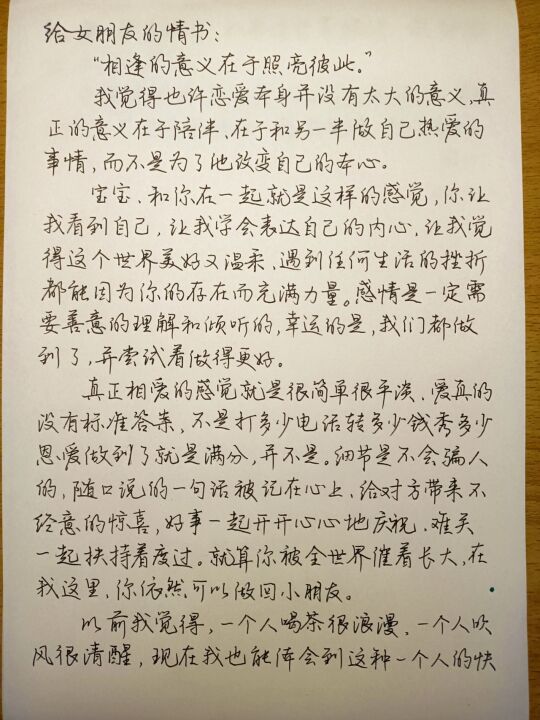 给女朋友的情书:
“相逢的意义在于照亮彼此。”
我觉得也许恋爱本身并没有太大的意义,真
正的意义在于陪伴、在于和另一半做自己热爱的
事情,而不是为了他改变自己的本心。
宝宝、和你在一起就是这样的感觉,你让
我看到自己,让我学会表达自己的内心,让我觉
得这个世界美好又温柔、遇到任何生活的挫折
都能因为你的存在而充满力量。感情是一定需
要善意的理解和倾听的,幸运的是,我们都做
到了,并尝试着做得更好。
真正相爱的感觉就是很简单很平淡、爱真的
没有标准答案,不是打多少电话转多少钱秀多少
恩爱做到了就是满分,并不是。细节是不会骗人
的,随口说的一句话被记在心上、给对方带来不
经意的惊喜,好事一起开开心心地庆祝、难关
一起扶持着度过。就算你被全世界催着长大,在
我这里,你依然可以做回小朋友。
以前我觉得,一个人喝茶很浪漫,一个人吹
风很清醒,现在我也能体会到这种一个人的快